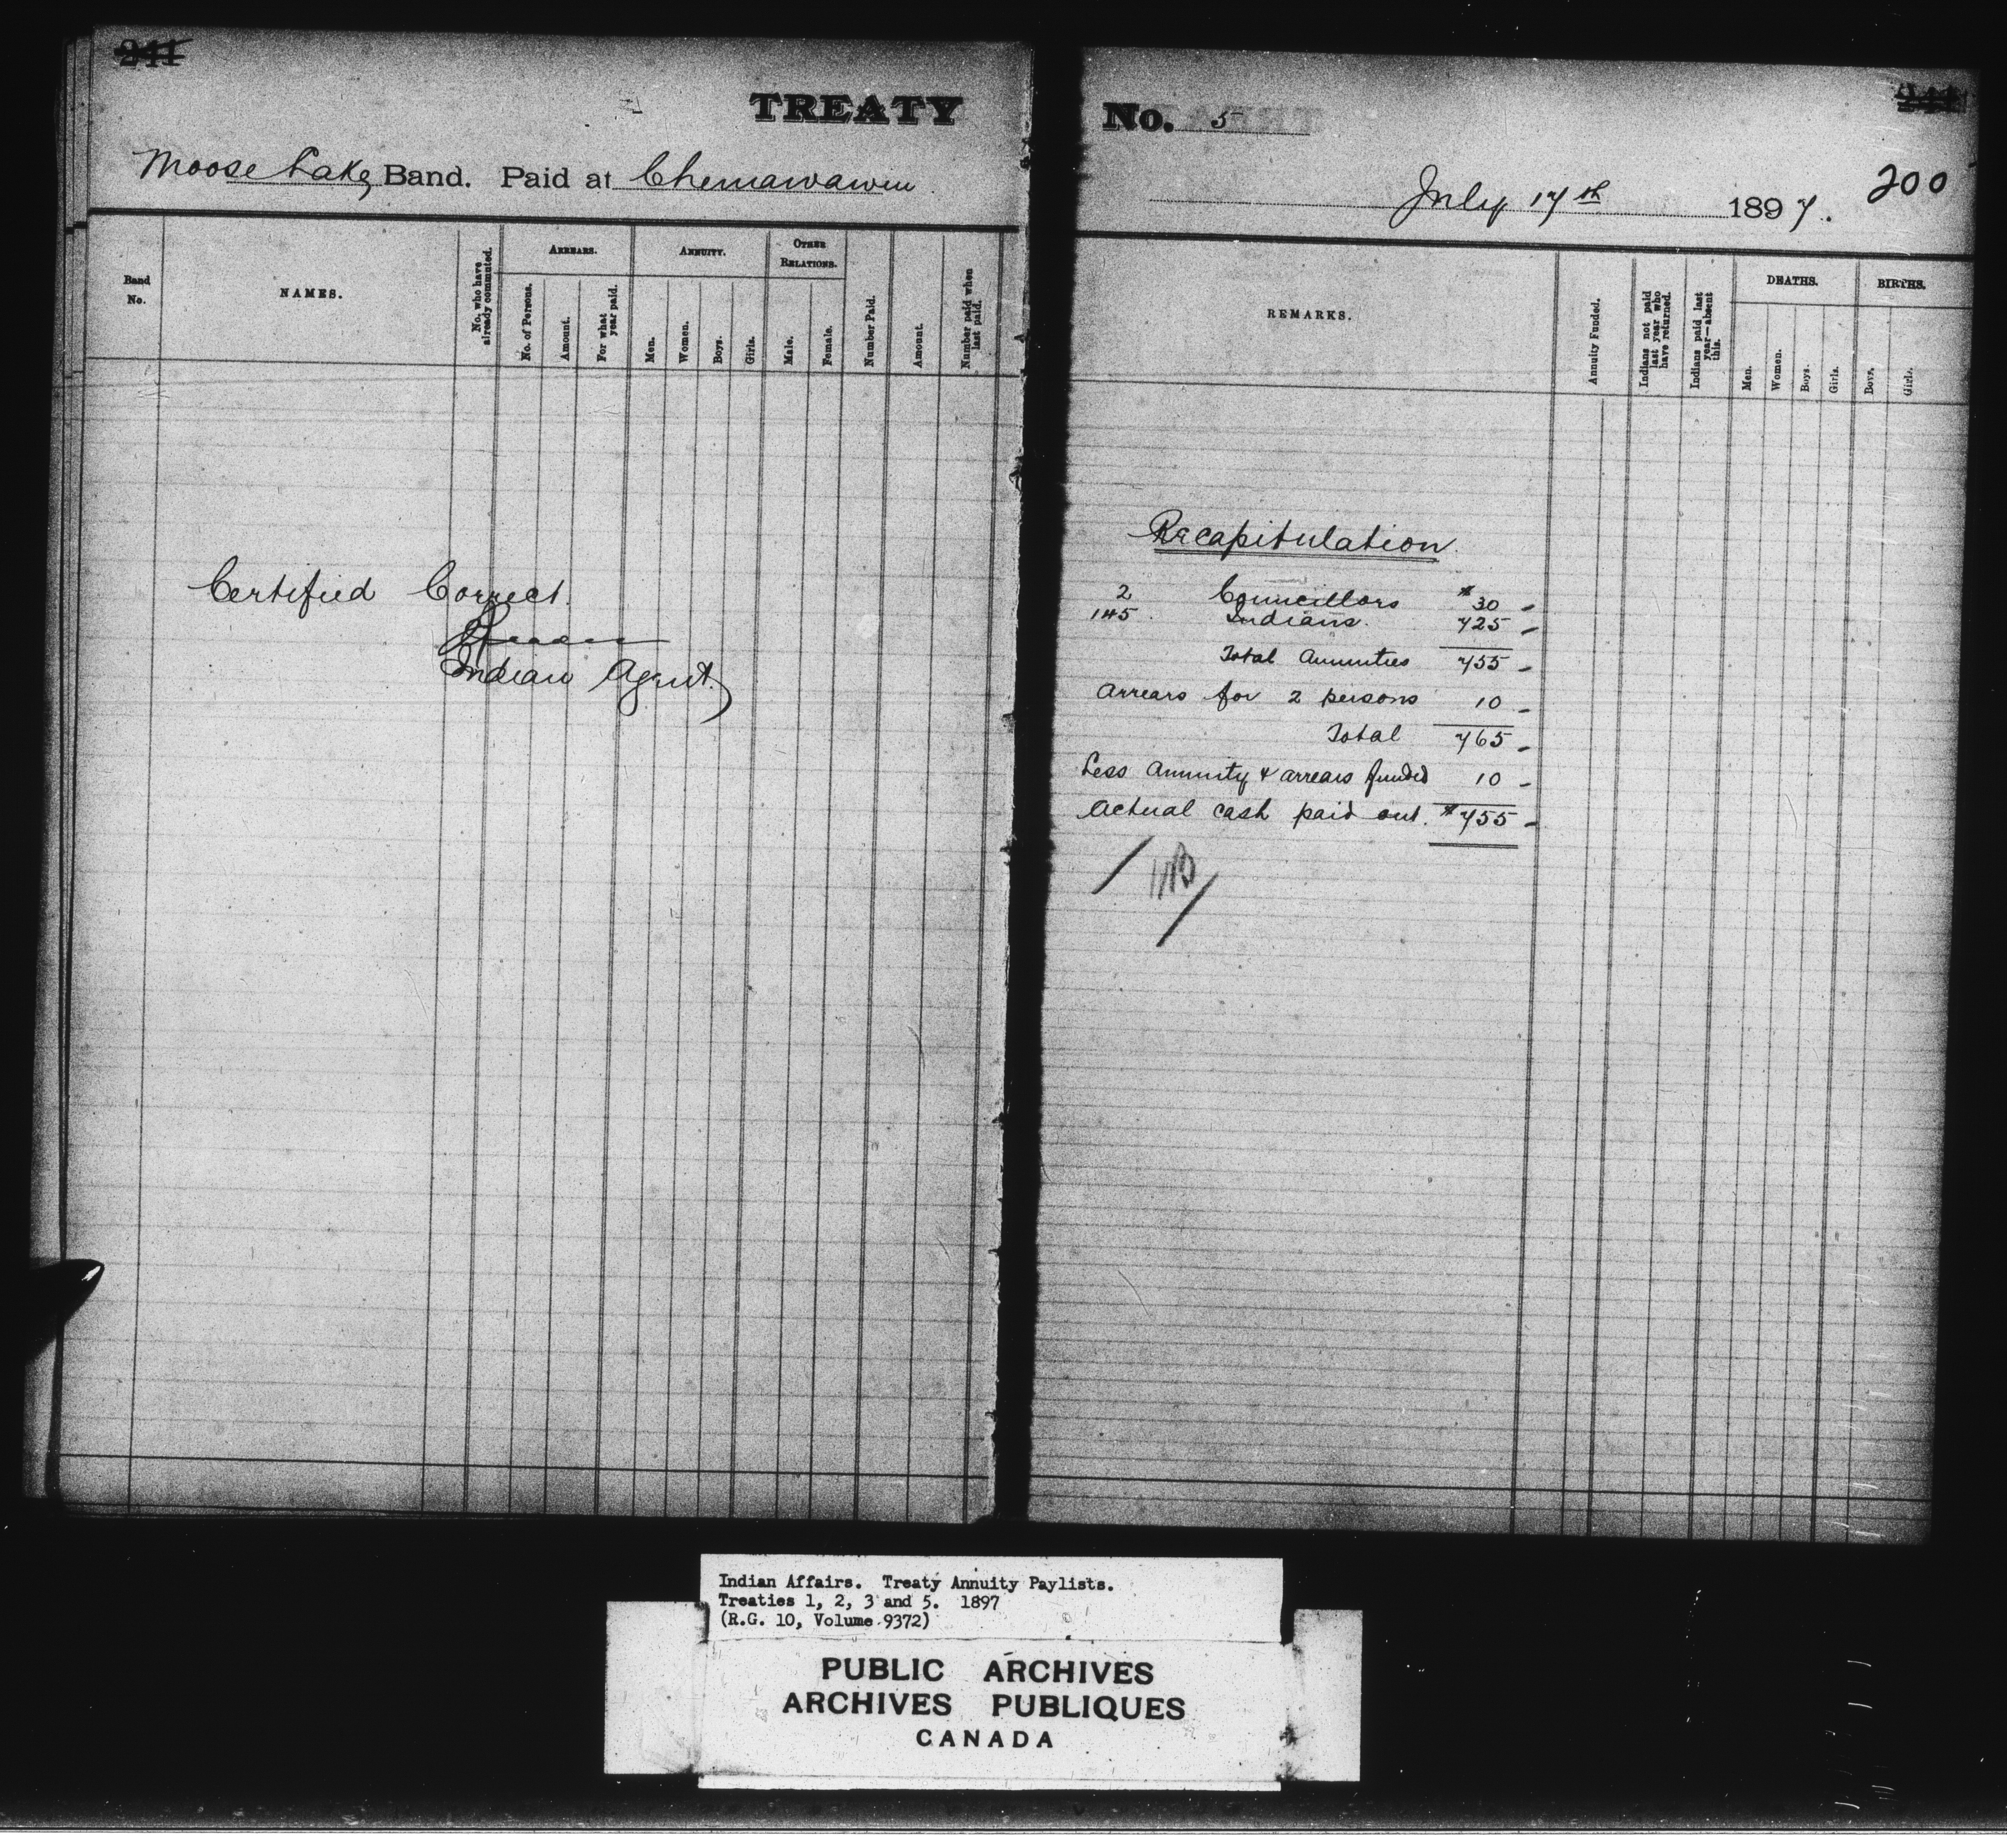 241
TREATY
Moose Lake Band. Paid at Chemawawin
Band No.
NAMES.
No. who have already commuted.
ARREARS.
No. of Persons.
Amount.
For what year paid.
ANNUITY.
Men.
Women.
Boys.
Girls.
OTHER RELATIONS.
Male.
Female.
Number Paid.
Amount.
Number paid when last paid.
Certified Correct.
Indian Agent.
No. 5
200
July 17th 1897.
REMARKS.
Annuity Funded.
Indians not paid last year who have returned.
Indians paid last year—absent this.
DEATHS.
Men.
Women.
Boys.
Girls.
BIRTHS.
Boys.
Girls.
Recapitulation.
2 Councillors $30 -
145. Indians. 725 -
Total Annuities 755 -
Arrears for 2 persons 10 -
Total 765 -
Less Annuity & arrears funded 10 -
Actual cash paid out. $755 -
Indian Affairs. Treaty Annuity Paylists.
Treaties 1, 2, 3 and 5. 1897
(R.G. 10, Volume 9372)
PUBLIC ARCHIVES
ARCHIVES PUBLIQUES
CANADA